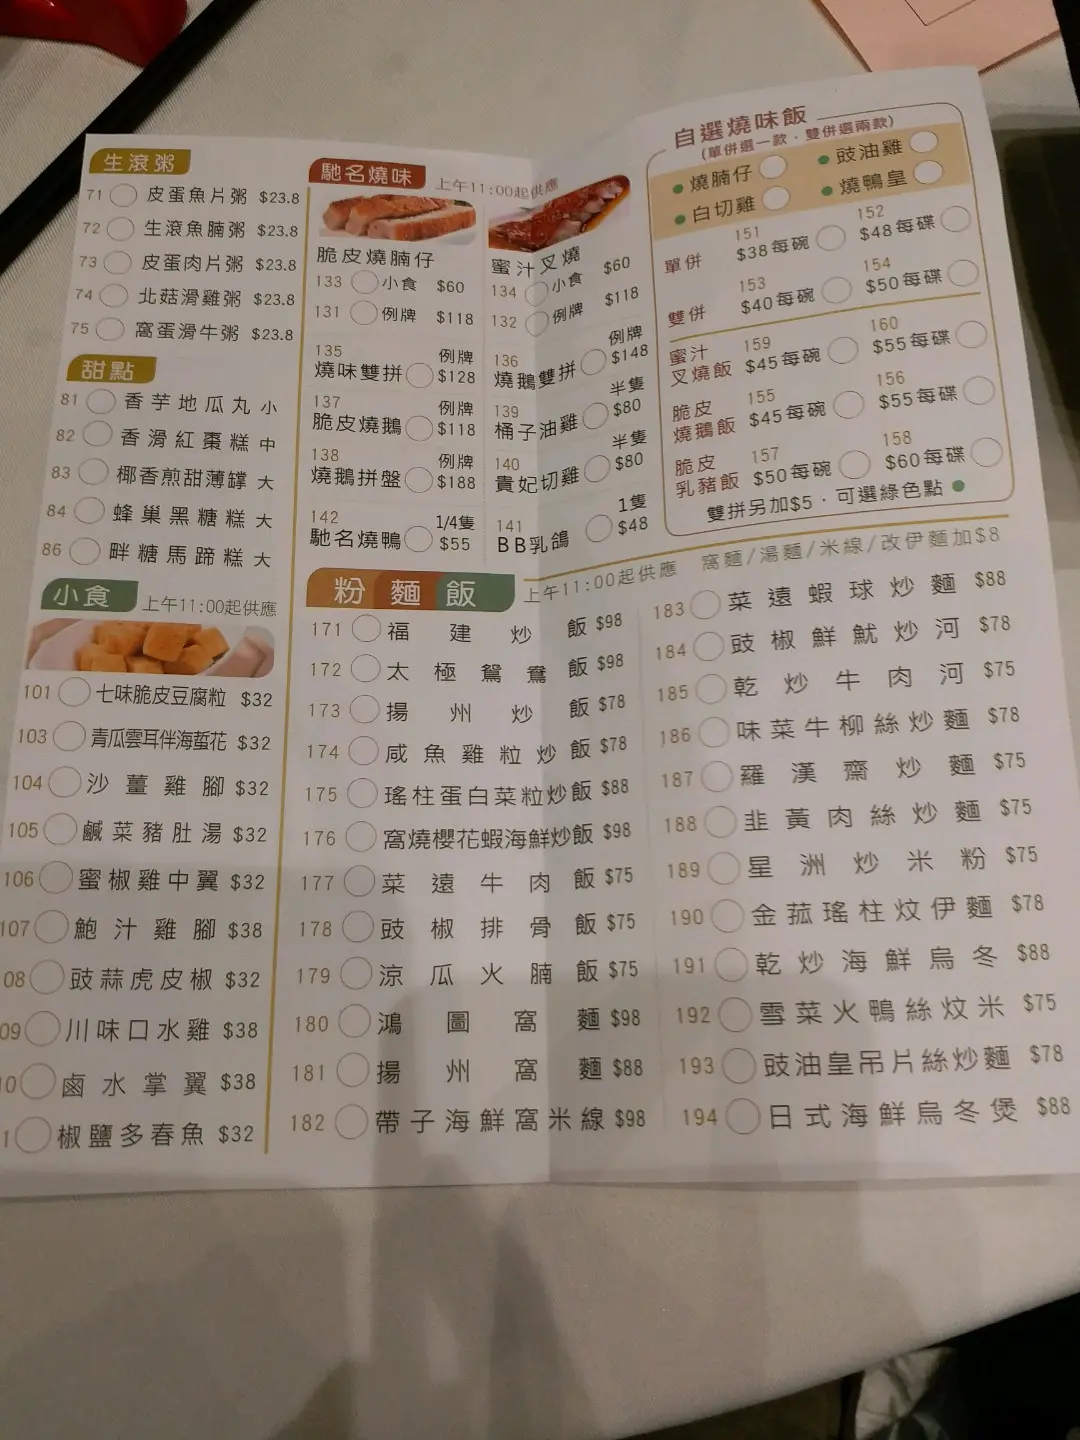 生滾粥
71 皮蛋魚片粥 $23.8
72 生滾魚腩粥 $23.8
73 皮蛋肉片粥 $23.8
74 北菇滑雞粥 $23.8
75 窩蛋滑牛粥 $23.8
甜點
81 香芋地瓜丸 小
82 香滑紅棗糕 中
83 椰香煎甜薄罉 大
84 蜂巢黑糖糕 大
86 畔糖馬蹄糕 大
小食 上午11:00起供應
101 七味脆皮豆腐粒 $32
103 青瓜雲耳伴海蜇花 $32
104 沙薑雞腳 $32
105 鹹菜豬肚湯 $32
106 蜜椒雞中翼 $32
107 鮑汁雞腳 $38
08 豉蒜虎皮椒 $32
09 川味口水雞 $38
10 鹵水掌翼 $38
1 椒鹽多春魚 $32
馳名燒味 上午11:00起供應
脆皮燒腩仔
133 小食 $60
131 例牌 $118
135 例牌
燒味雙拼 $128
137 例牌
脆皮燒鵝 $118
138 例牌
燒鵝拼盤 $188
142 1/4隻
馳名燒鴨 $55
蜜汁叉燒
134 小食 $60
132 例牌 $118
136 例牌
燒鵝雙拼 $148
139 半隻
桶子油雞 $80
140 半隻
貴妃切雞 $80
141 1隻
BB乳鴿 $48
自選燒味飯
(單併選一款．雙併選兩款)
燒腩仔 豉油雞
白切雞 燒鴨皇
151 152
單併 $38每碗 $48每碟
153 154
雙併 $40每碗 $50每碟
蜜汁 159 160
叉燒飯 $45每碗 $55每碟
脆皮 155 156
燒鵝飯 $45每碗 $55每碟
脆皮 157 158
乳豬飯 $50每碗 $60每碟
雙拼另加$5．可選綠色點
粉麵飯 上午11:00起供應 窩麵/湯麵/米線/改伊麵加$8
171 福建炒飯 $98
172 太極鴛鴦飯 $98
173 揚州炒飯 $78
174 咸魚雞粒炒飯 $78
175 瑤柱蛋白菜粒炒飯 $88
176 窩燒櫻花蝦海鮮炒飯 $98
177 菜遠牛肉飯 $75
178 豉椒排骨飯 $75
179 涼瓜火腩飯 $75
180 鴻圖窩麵 $98
181 揚州窩麵 $88
182 帶子海鮮窩米線 $98
183 菜遠蝦球炒麵 $88
184 豉椒鮮魷炒河 $78
185 乾炒牛肉河 $75
186 味菜牛柳絲炒麵 $78
187 羅漢齋炒麵 $75
188 韭黃肉絲炒麵 $75
189 星洲炒米粉 $75
190 金菰瑤柱炆伊麵 $78
191 乾炒海鮮烏冬 $88
192 雪菜火鴨絲炆米 $75
193 豉油皇吊片絲炒麵 $78
194 日式海鮮烏冬煲 $88